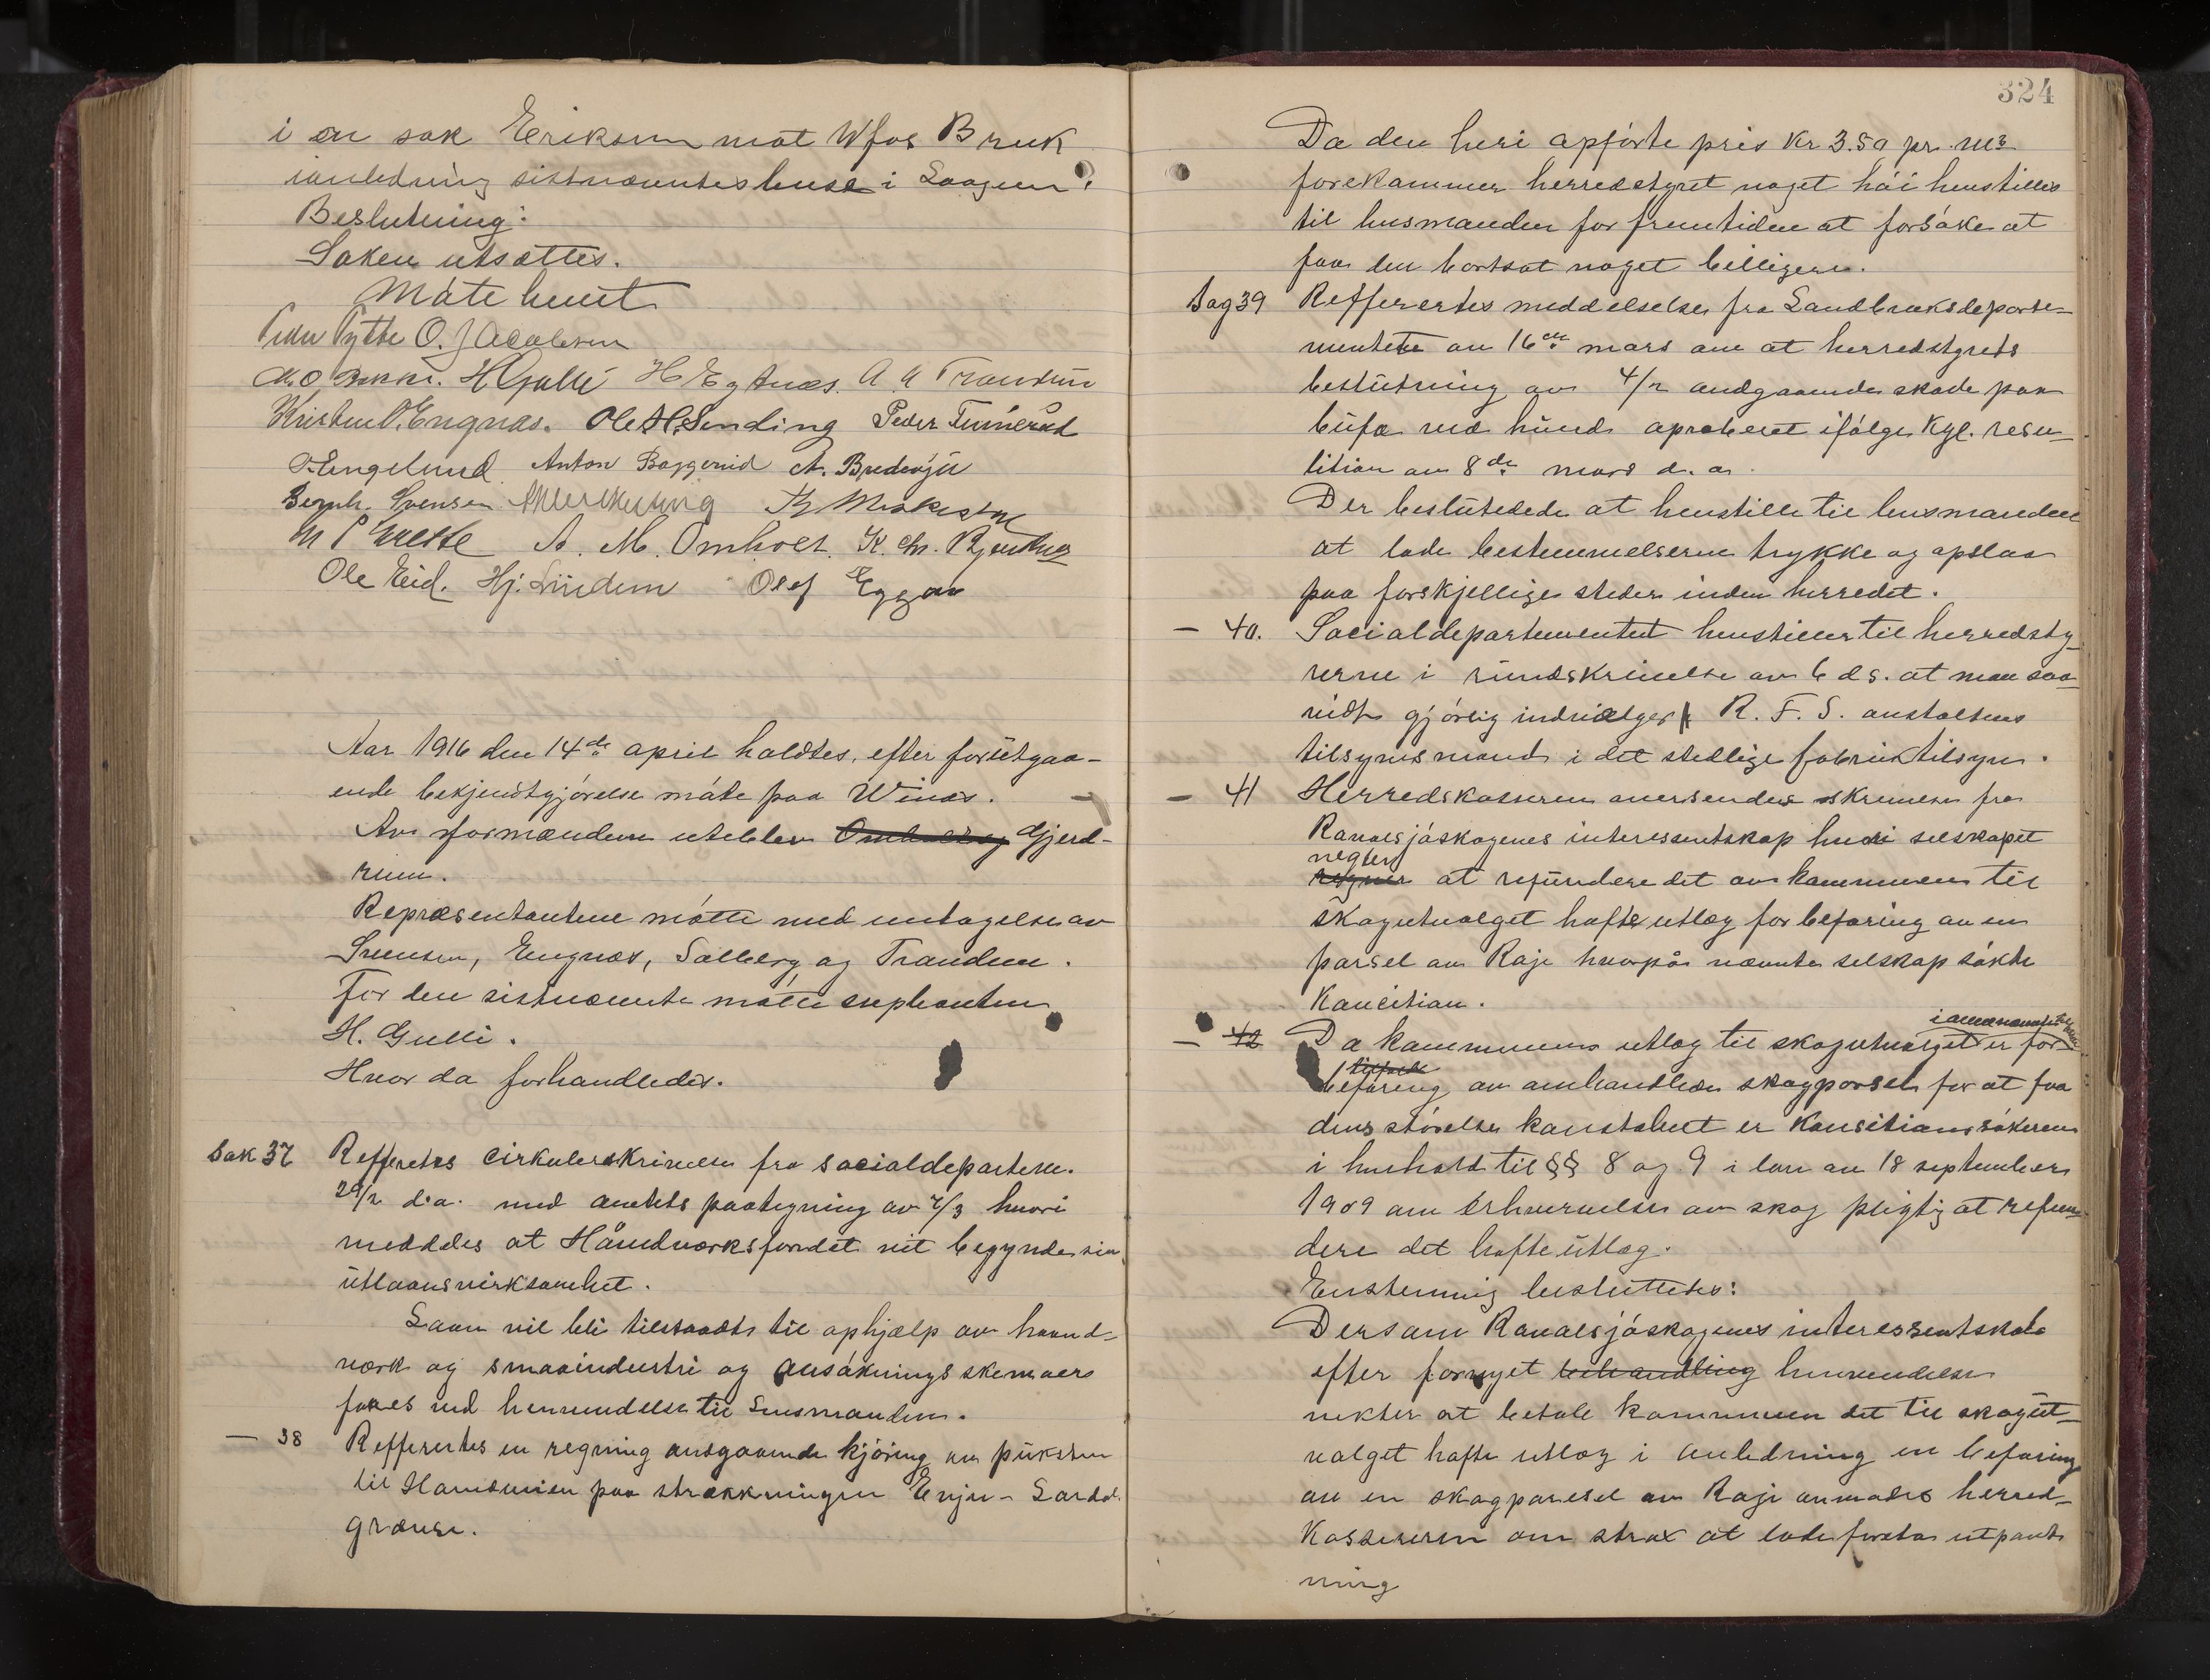 i en sak Eriksen mot Wfos Bruk
ianledning sistnævntes lense i Laagen.
Beslutning:
Saken utsættes.
Møte hævet
Peder Pytte O. Jacobsen
H Gulli H Egtnæs. A. A Trandum
Kristen O. Engnæs. Ole H. Sending Peder Tunerud
Engelund Anton Baggerud A.
Bernh. Svensen
A. M. Omholt. K. Chr.
Ole Eid. Hj. Lindem Olef Eggar
Aar 1916 den 14de april holdtes, efter forutgaa-
ende bekjendtgjørelse møte paa Winæs.
Av formændene uteblev Omholt og Gjerd-
rum.
Repræsentantene møtte med untagelse av
Svensen, Engnæs, Solberg og Trandum.
For den sistnævnte møtte suplianten
H. Gulli.
Hvor da forhandledes.
Sak 37 Refferertes cirkulerskrivelse fra socialdepartem.
29/2 d.a. med amtets paategning av 7/3 hvori
meddeles at Håndværksfondet vil begynde sin
utlaansvirksomhet.
Laan vil bli tilstaadt til ophjælp av haand-
værk og smaaindustri og ansøkningsskemaer
faaes ved henvendelse til Lensmanden.
— 38 Refferertes en regning angaaende kjøring av puksten
til Hamsmien paa strækkningen Enju - Sardal.
grænse.
324
Da den heri opførte pris Kr 3.50 pr. m3
forekommer herredstyret noget høi henstilles
til lensmanden for fremtiden at forsøke at
faa den bortsat noget billigere.
Sag 39 Refferertes meddelelse fra Landbruksdeparte-
mentete av 16de mars om at herredstyrets
beslutning av 4/2 angaaende skade paa
bufæ ved hund aproberet ifølge Kgl. reso-
lition av 8de mars d. a.
Der beslutedes at henstille til lensmanden
at lade bestemmelserne trykke og opslaa
paa forskjellige steder inden herredet.
— 40. Socialdepartementet henstiller til herredsty-
rerne i rundskrivelse av 6 ds. at man saa-
vidt gjørlig indvælger R. F. S. anstaltens
tilsynsmand i det stedlige fabriktilsyn.
— 41 Herredskasseren oversender skrivelse fra
Ravalsjøskogenes interessentskap hvori selskapet
negter
regner at refundere det av kommunen til
skogutvalget hafte utlæg for befaring av en
parsel av Raje hvorpå nævnte selskap søkte
Koncition.
— 42 Da kommunens utlæg til skogutvalget er for
befaring av omhandlede skogparsel for at faa
dens størelse konstatert er Konsitionssøkeren
i henhold til §§ 8 og 9 i lov av 18 september
1909 om Erhvervelse av skog pligtig at refun-
dere det hafte utlæg.
Enstemmig besluttedes:
Dersom Ravalsjøskogenes interessentskab
efter fornyet behandling henvendelse
nekter at betale kommunen det til skogut-
valget hafte utlæg i anledning en befaring
av en skogparcel av Raje anmodes herred-
kassereren om strax at lade foreta utpant-
ning